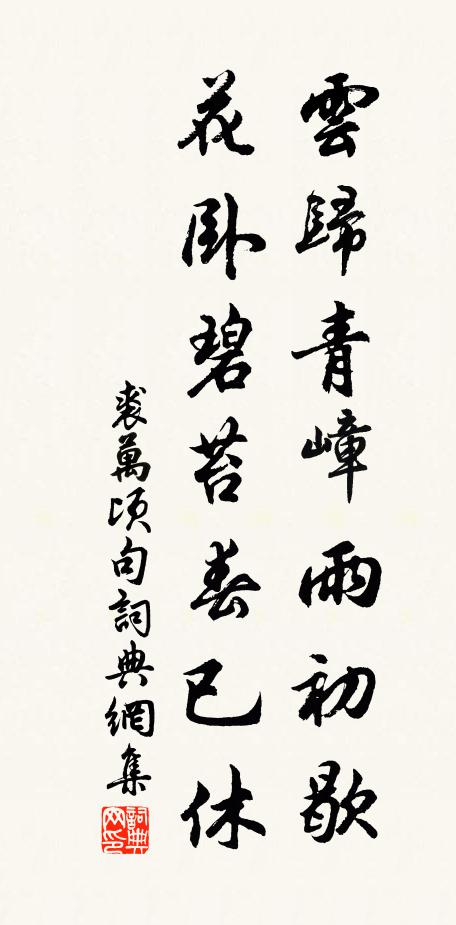 雲歸青嶂雨初歇
花卧碧苔春已休
裘萬頃句詞典網集
詞典網印